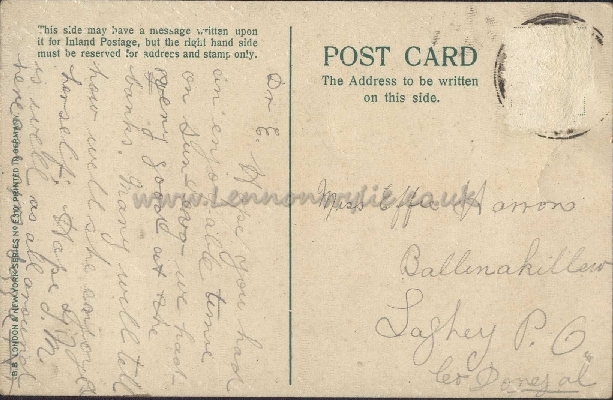 This side may have a message written upon
it for Inland Postage, but the right hand side
must be reserved for address and stamp only.
Dr E. Hope you had
an enjoyable time
on Sunday we had
very good at the
banks. Many will tell
how well she enjoyed
herself. Hope J. M.
is well as all around
here
POST CARD
The Address to be written
on this side.
Miss Effa Harron
Ballinakillew
Laghey P. O.
Co Donegal
B.B. LONDON & NEW YORK. SERIES No E PRINTED IN GERMANY
www.Lennonwylie.co.uk